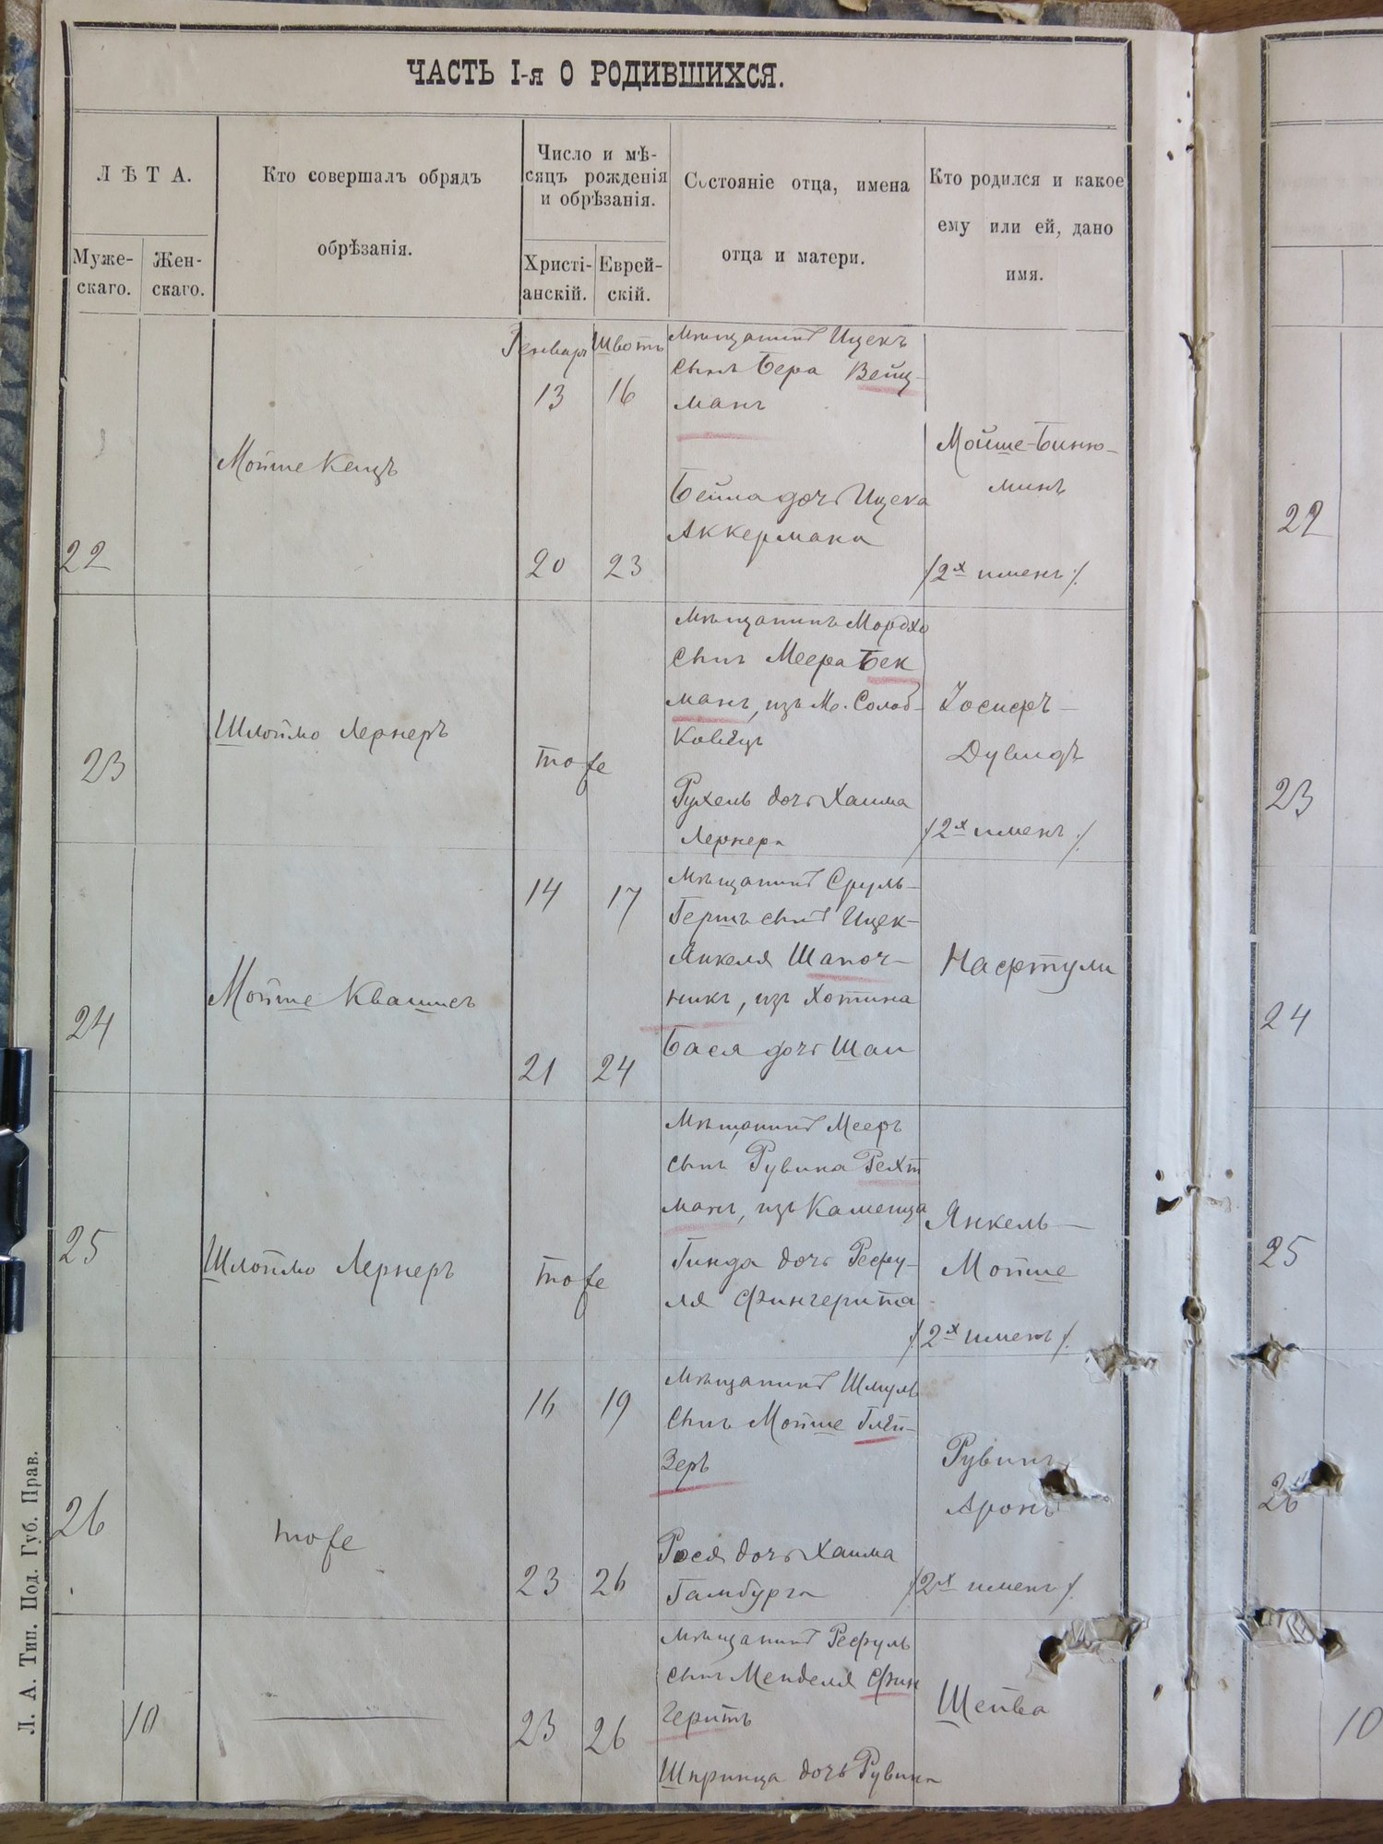 ЧАСТЬ I-я О РОДИВШИХСЯ.
ЛѢТА.
Муже-
скаго.
Жен-
скаго.
Кто совершалъ обрядъ
обрѣзанія.
Число и мѣ-
сяцъ рожденія
и обрѣзанія.
Христі-
анскій.
Еврей-
скій.
Состояніе отца, имена
отца и матери.
Кто родился и какое
ему или ей, дано
имя.
22
Мойше Кацъ
Генваръ
13
20
Швотъ
16
23
Мѣщанинъ Ицекъ
сынъ Бера Вейц-
манъ
Бейла дочь Ицека
Аккермана
Мойше-Биню-
минъ
/2х именъ/.
22
23
Шлоймо Лернеръ
тоfе
Мѣщанинъ Мордхо
сынъ Меера Бек
манъ, изъ М. Солоб-
ковецъ
Рухель дочь Хаима
Лернера
Іосифъ-
Дувидъ
/2х именъ/.
23
24
Мойше Квашисъ
14
21
17
24
Мѣщанинъ Сруль-
Гершъ сынъ Ицек-
Янкеля Шапоч-
никъ, изъ Хотина
Бася дочь Шаи
Нафтули
24
25
Шлоймо Лернеръ
тоfе
Мѣщанинъ Мееръ
сынъ Рувина Рехт
манъ, изъ Каменца
Гинда дочь Рефу-
ля Фингерита
Янкель-
Мойше
/2х именъ/.
25
26
тоfе
16
23
19
26
Мѣщанинъ Шмуль
сынъ Мойше Глей-
зеръ
Рося дочь Хаима
Гамбурга
Рувинъ
Аронъ
/2х именъ/.
26
10
23
26
Мѣщанинъ Рефуль
сынъ Менделя Фин
геритъ
Шпринца дочь Рувина
Шейва
10
Л. А. Тип. Под. Губ. Прав.